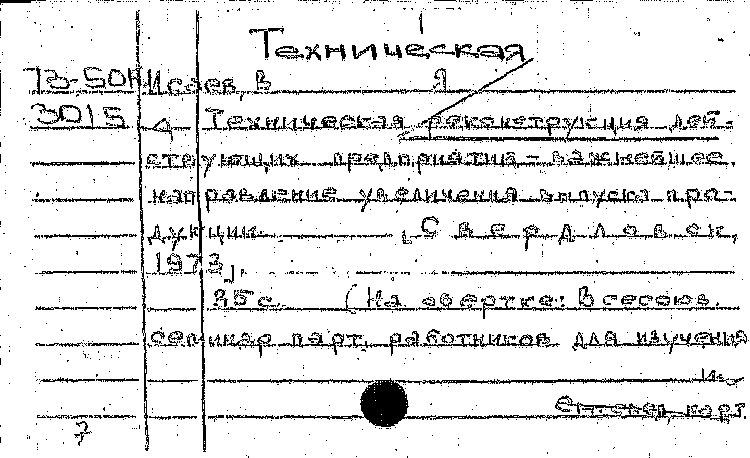 Техническая
73-50К Исаев, В Я
3015 Техническая реконструкция дей-
ствующих предприятий - важнейшее
направление увеличения выпуска про-
дукции. [Свердловск,
1973].
35 с. (На обертке: Всесоюз.
семинар парт. работников для изучения
карт.
7